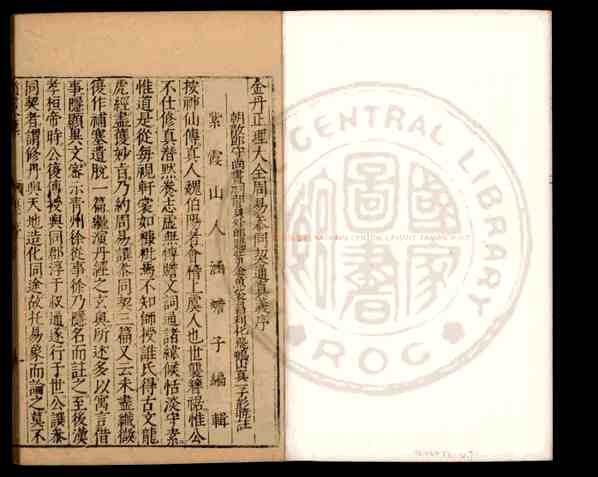 金丹正理大全周易參同契通真義序
朝散郎守尚書祠部員外郎賜紫金魚袋昌利化飛鶴山真一子彭曉註
紫霞山人涵蟾子編輯
按神仙傳真人魏伯陽者會稽上虞人也世襲簪裾惟公
不仕修真潛默養志虛無博贍文詞通諸緯候恬淡守素
惟道是從每視軒裳如糠粃焉不知師授誰氏得古文龍
虎經盡獲妙旨乃約周易譔參同契三篇又云未盡纖微
復作補塞遺脫一篇繼演丹經之玄奧所述多以寓言借
事隱顯異文密示青州徐從事徐乃隱名而註之至後漢
孝桓帝時公復傳授與同郡淳于叔通遂行于世公譔參
同契者謂修丹與天地造化同途故托易象而論之莫不
NATIONAL CENTRAL LIBRARY
國家圖書
ROC